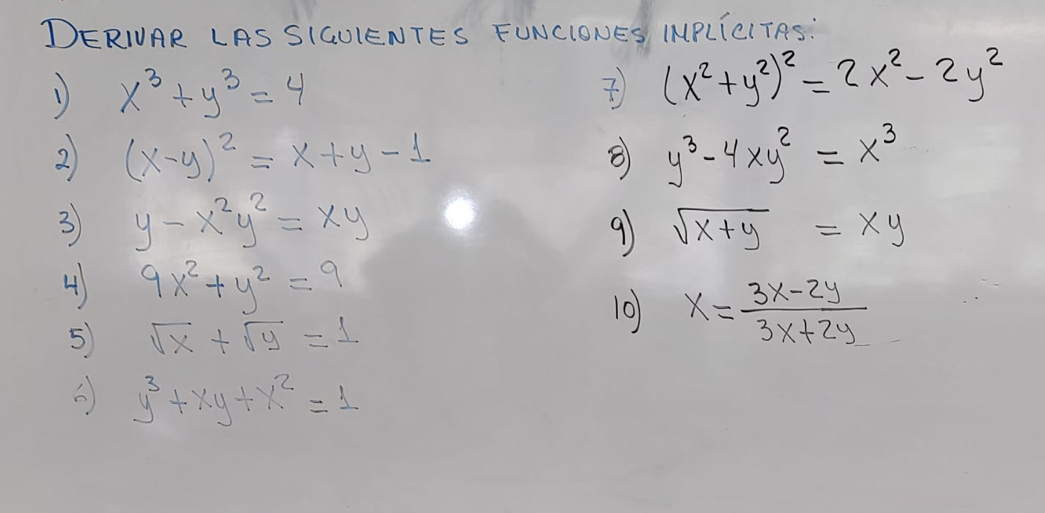 DERIVAR LAS SIGUIENTES FUNCIONES IMPLÍCITAS:
1) x³ + y³ = 4
2) (x-y)² = x + y - 1
3) y - x²y² = xy
4) 9x² + y² = 9
5) √x + √y = 1
6) y³ + xy + x² = 1
7) (x² + y²)² = 2x² - 2y²
8) y³ - 4xy² = x³
9) √(x+y) = xy
10) x = (3x-2y)/(3x+2y)